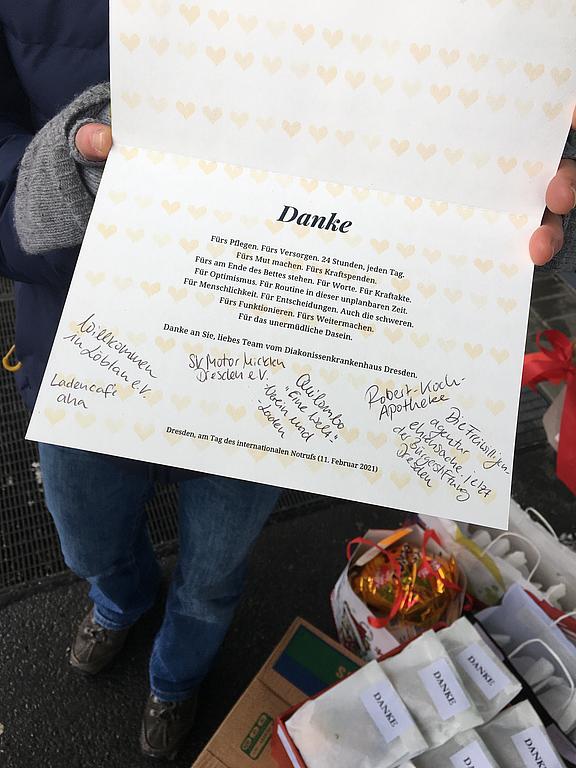 Danke
Fürs Pflegen. Fürs Versorgen. 24 Stunden, jeden Tag.
Fürs Mut machen. Fürs Kraftspenden.
Fürs am Ende des Bettes stehen. Für Worte. Für Kraftakte.
Für Optimismus. Für Routine in dieser unplanbaren Zeit.
Für Menschlichkeit. Für Entscheidungen. Auch die schweren.
Fürs Funktionieren. Fürs Weitermachen.
Für das unermüdliche Dasein.
Danke an Sie, liebes Team vom Diakonissenkrankenhaus Dresden.
Willkommen
in Löbtau e.V.
Ladencafé
aha
SV Motor Mickten
Dresden e.V.
Quilombo
"Eine Welt"-
Verein und
-Laden
Robert-Koch-
Apotheke
Die Freiwilligen-
agentur
ehrensache.jetzt
der Bürgerstiftung
Dresden
Dresden, am Tag des internationalen Notrufs (11. Februar 2021)
DANKE
DANKE
DANKE
DANKE
DANKE